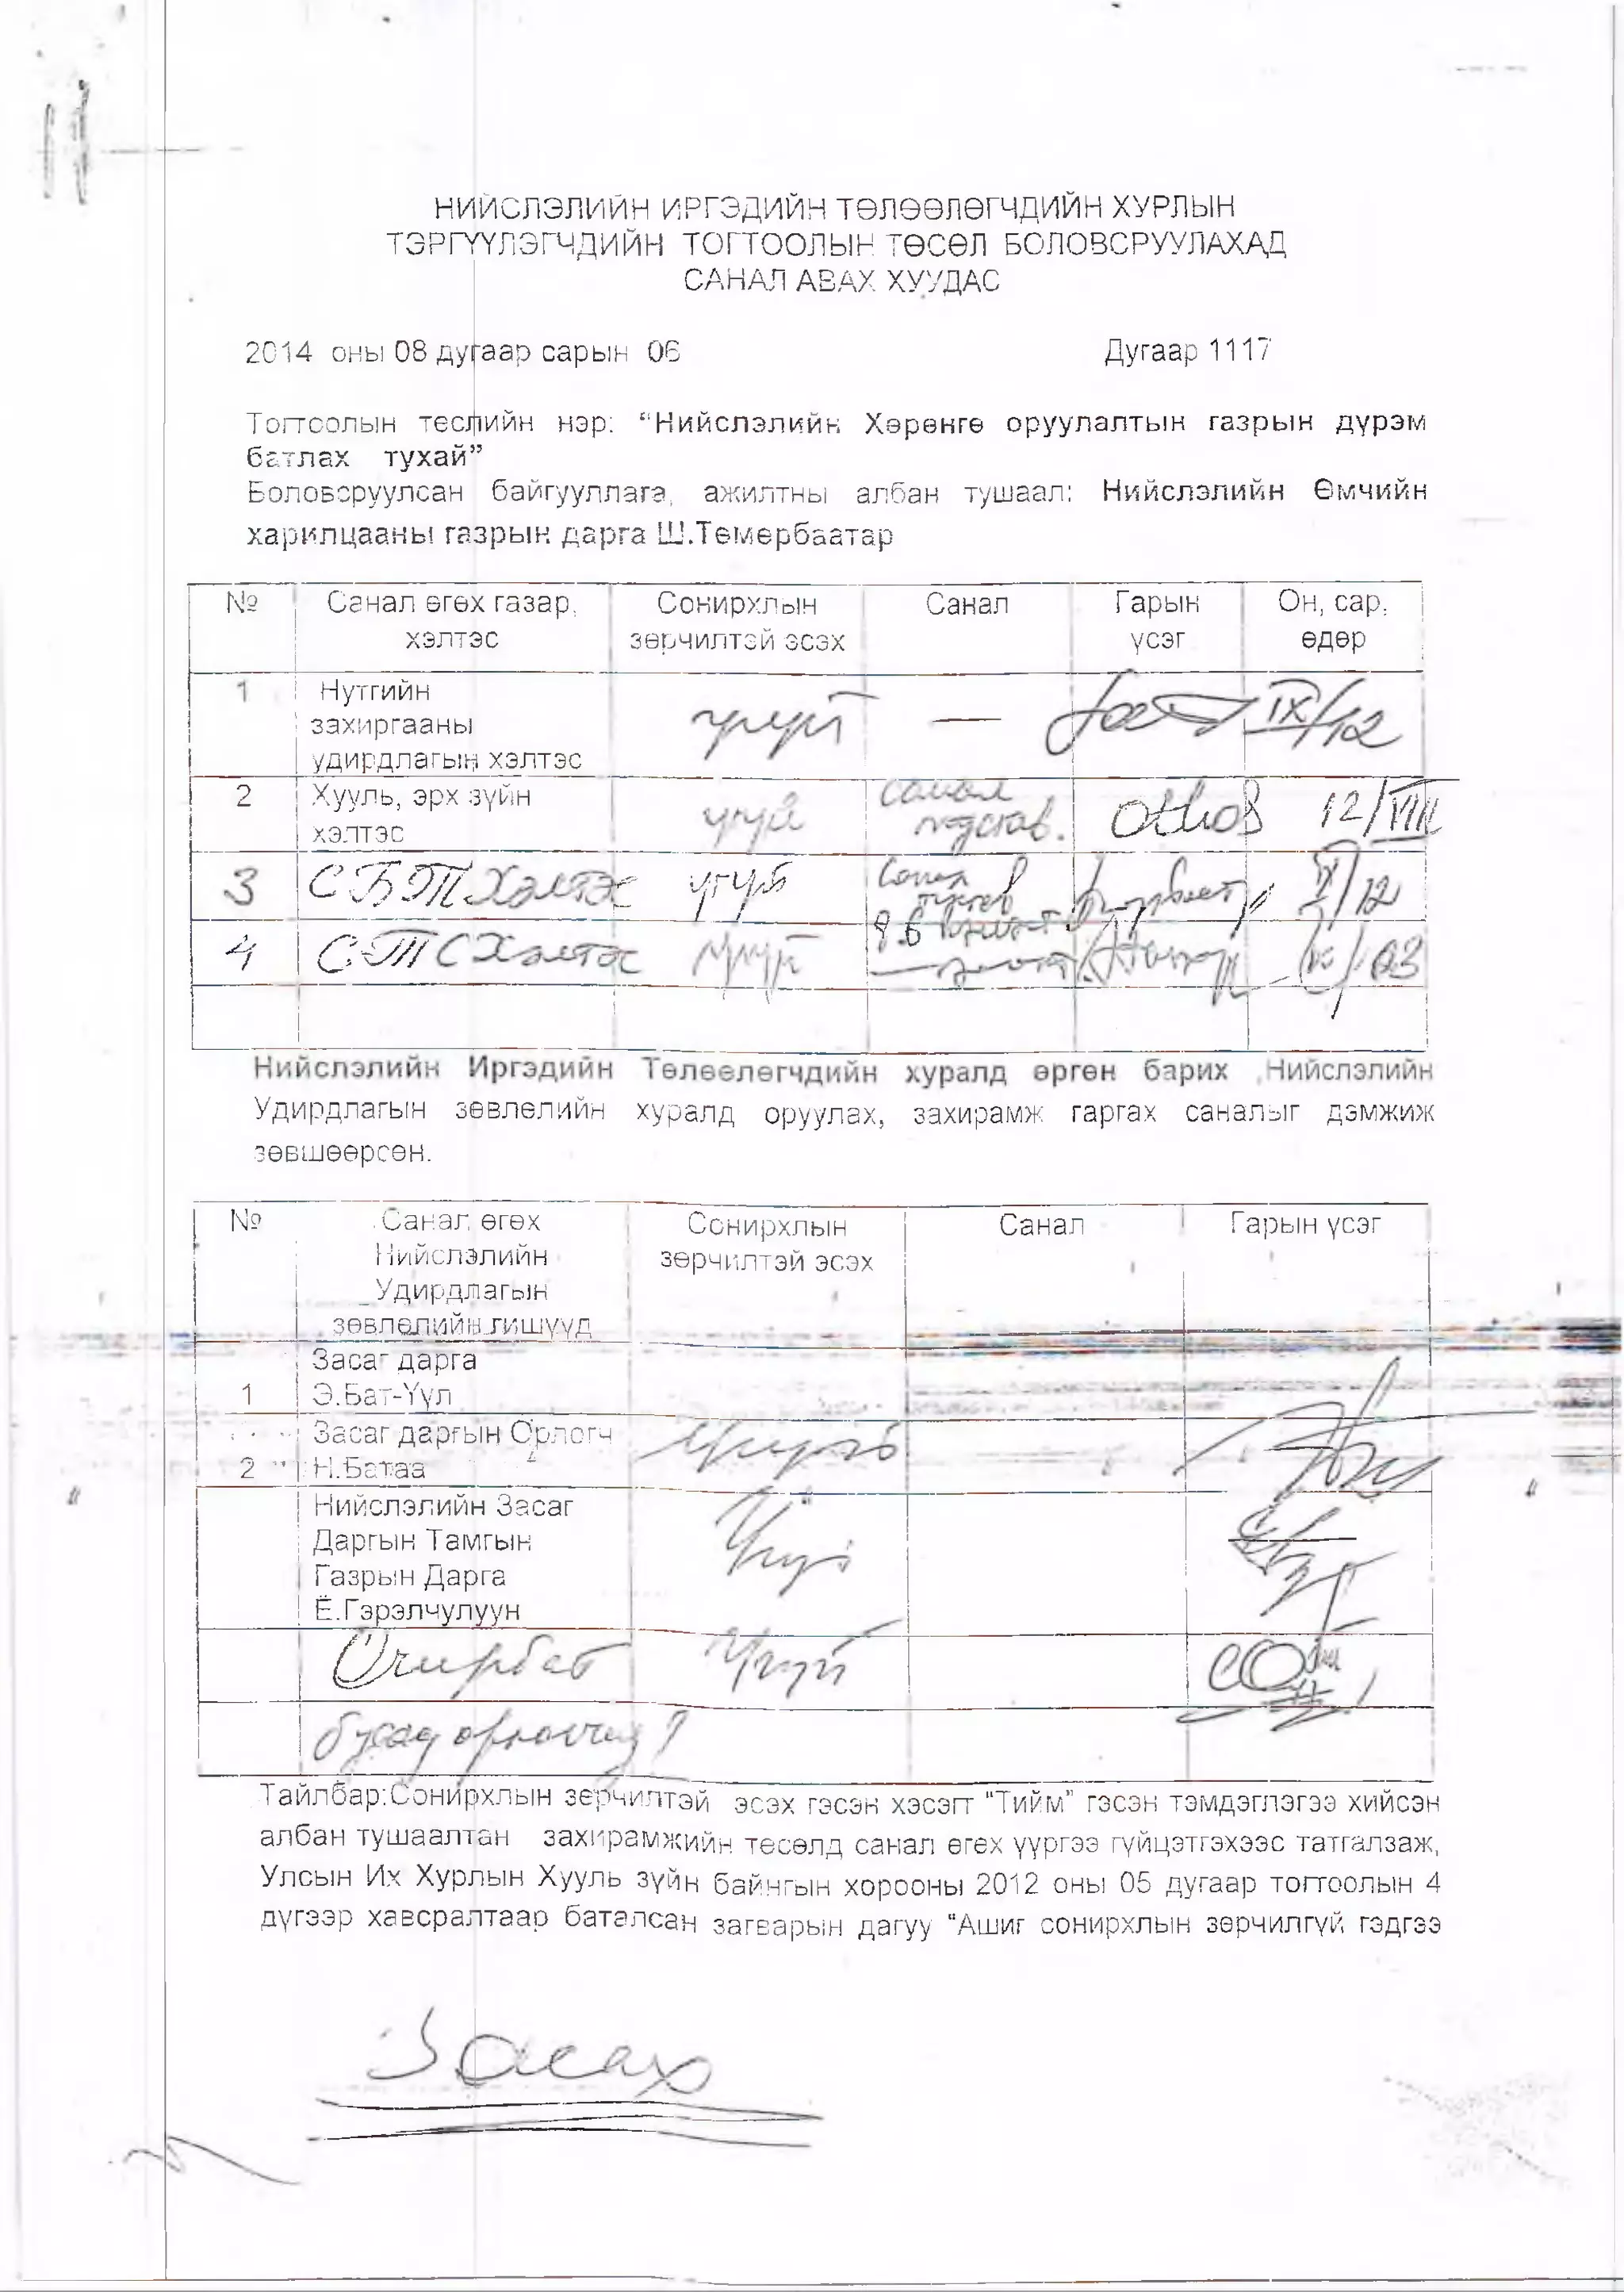 НИЙСЛЭЛИЙН ИРГЭДИЙН ТӨЛӨӨЛӨГЧДИЙН ХУРЛЫН
ТЭРГҮҮЛЭГЧДИЙН ТОГТООЛЫН ТӨСӨЛ БОЛОВСРУУЛАХАД
САНАЛ АВАХ ХУУДАС
2014 оны 08 дугаар сарын 06 Дугаар 1117
Тогтоолын төслийн нэр: “Нийслэлийн Хөрөнгө оруулалтын газрын дүрэм
батлах тухай”
Боловсруулсан байгууллага, ажилтны албан тушаал: Нийслэлийн Өмчийн
харилцааны газрын дарга Ш.Төмөрбаатар
№ Санал өгөх газар, Сонирхлын Санал Гарын Он, сар,
хэлтэс зөрчилтэй эсэх үсэг өдөр
1 Нутгийн
захиргааны үгүй — IX/12
удирдлагын хэлтэс
2 Хууль, эрх зүйн үгүй санал 12/VIII
хэлтэс
3 СБТ Хэлтэс үгүй Санал IX/12
4 СТС Хэлтэс үгүй
Нийслэлийн Иргэдийн Төлөөлөгчдийн хуралд өргөн барих ,Нийслэлийн
Удирдлагын зөвлөлийн хуралд оруулах, захирамж гаргах саналыг дэмжиж
зөвшөөрсөн.
№ Санал өгөх Сонирхлын Санал Гарын үсэг
Нийслэлийн зөрчилтэй эсэх
Удирдлагын
зөвлөлийн гишүүд
Засаг дарга
1 Э.Бат-Үүл
Засаг даргын Орлогч үгүй
2 Н.Батаа
Нийслэлийн Засаг
Даргын Тамгын үгүй
Газрын Дарга
Ё.Гэрэлчулуун
Очирбат үгүй
бусад орлогчид?
Тайлбар:Сонирхлын зөрчилтэй эсэх гэсэн хэсэгт “Тийм” гэсэн тэмдэглэгээ хийсэн
албан тушаалтан захирамжийн төсөлд санал өгөх үүргээ гүйцэтгэхээс татгалзаж,
Улсын Их Хурлын Хууль зүйн байнгын хорооны 2012 оны 05 дугаар тогтоолын 4
дүгээр хавсралтаар баталсан загварын дагуу “Ашиг сонирхлын зөрчилгүй гэдгээ
Засах